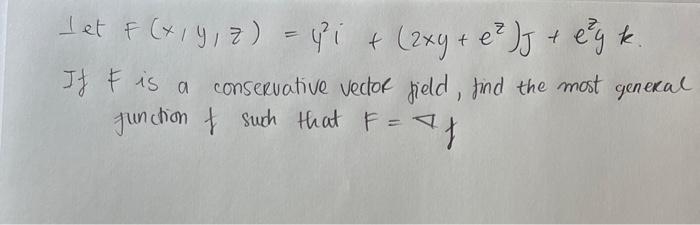 Let F(x,y,z) = y²i + (2xy + e^z)J + e^z y k.
If F is a conservative vector field, find the most general
function f such that F = ∇f